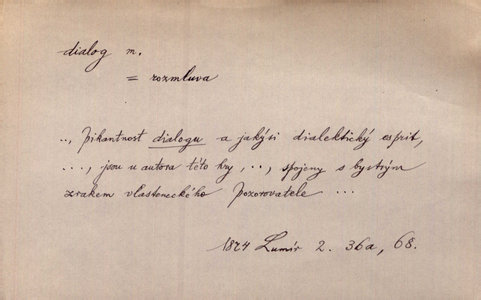 dialog m.
= rozmluva
.., pikantnost dialogu a jakýsi dialektický esprit,
..., jsou u autora této hry, .., spojeny s bystrým
zrakem vlasteneckého pozorovatele ...
1874 Lumír 2. 36a, 68.